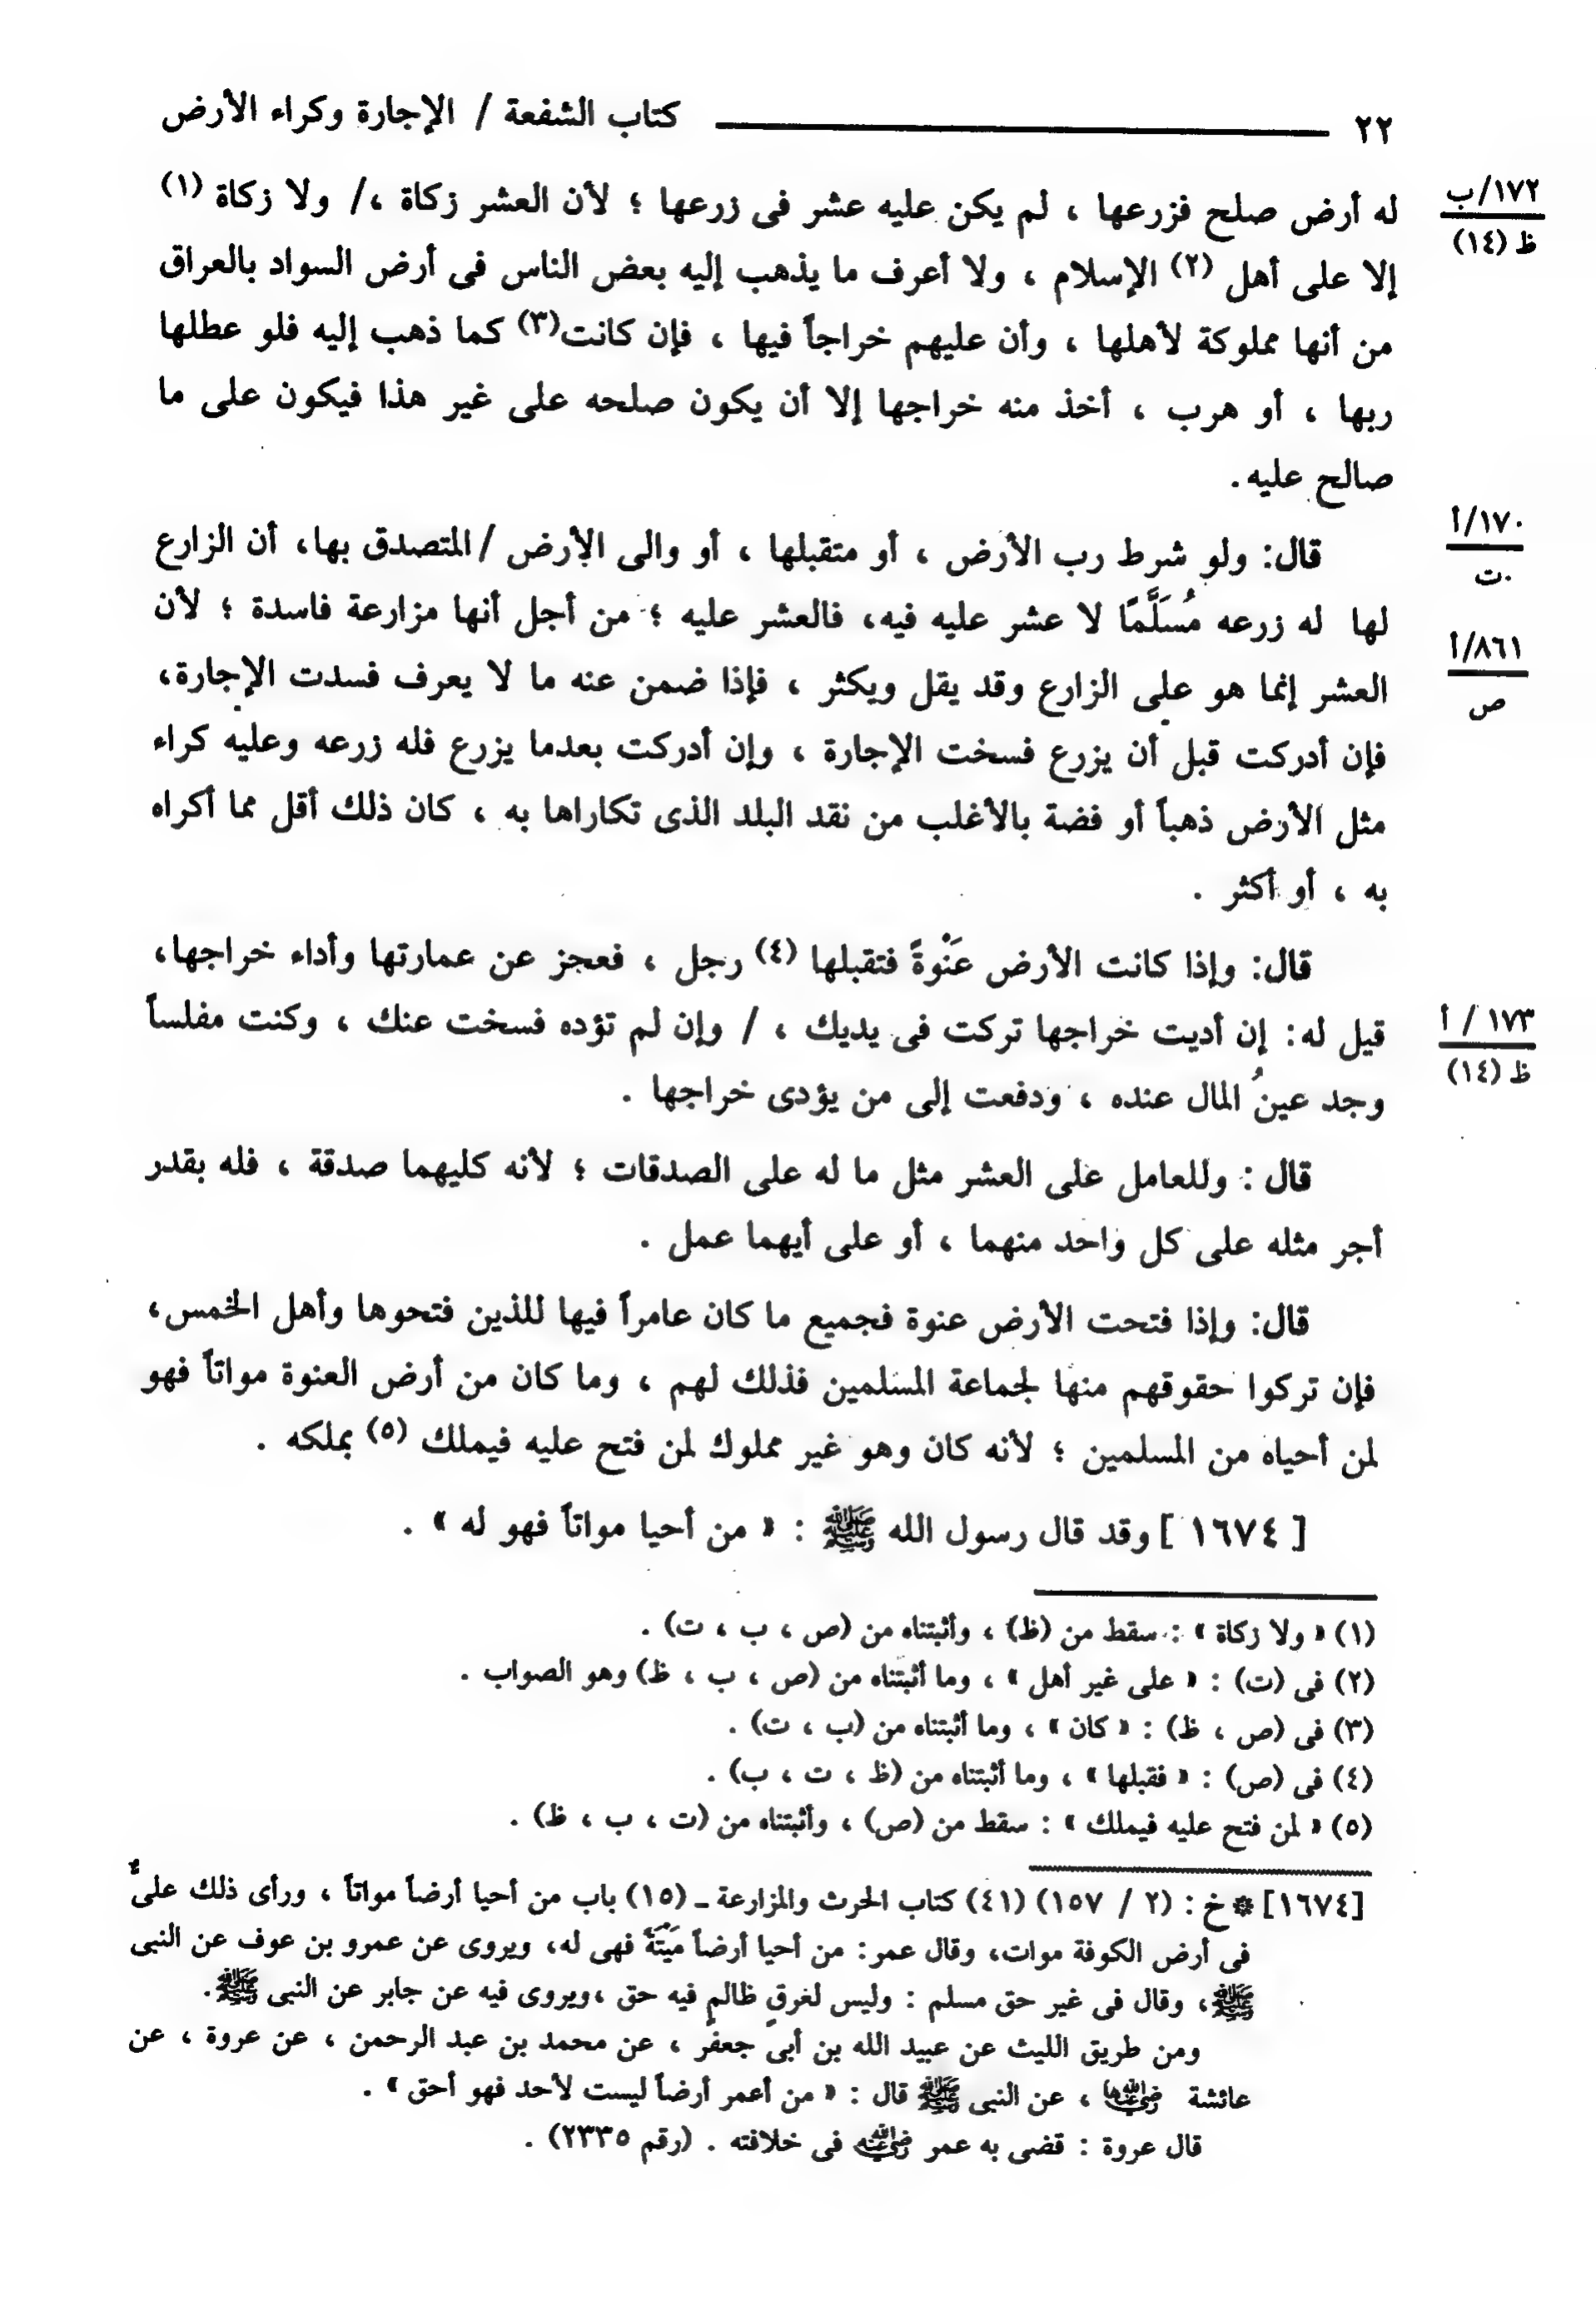 ٢٢ كتاب الشفعة / الإجارة وكراء الأرض
له أرض صلح فزرعها ، لم يكن عليه عشر فى زرعها ؛ لأن العشر زكاة ،/ ولا زكاة (١)
١٧٢/ب
ظ (١٤)
إلا على أهل (٢) الإسلام ، ولا أعرف ما يذهب إليه بعض الناس فى أرض السواد بالعراق
من أنها مملوكة لأهلها ، وأن عليهم خراجاً فيها ، فإن كانت(٣) كما ذهب إليه فلو عطلها
ربها ، أو هرب ، أخذ منه خراجها إلا أن يكون صلحه على غير هذا فيكون على ما
صالح عليه .
قال: ولو شرط رب الأرض ، أو متقبلها ، أو والى الأرض /المتصدق بها، أن الزارع
١٧٠/أ
ت
لها له زرعه مُسَلَّمًا لا عشر عليه فيه، فالعشر عليه ؛ من أجل أنها مزارعة فاسدة ؛ لأن
٨٦١/أ
ص
العشر إنما هو على الزارع وقد يقل ويكثر ، فإذا ضمن عنه ما لا يعرف فسدت الإجارة،
فإن أدركت قبل أن يزرع فسخت الإجارة ، وإن أدركت بعدما يزرع فله زرعه وعليه كراء
مثل الأرض ذهباً أو فضة بالأغلب من نقد البلد الذى تكاراها به ، كان ذلك أقل مما أكراه
به ، أو أكثر .
قال: وإذا كانت الأرض عَنْوةً فتقبلها (٤) رجل ، فعجز عن عمارتها وأداء خراجها،
قيل له: إن أديت خراجها تركت فى يديك ، / وإن لم تؤده فسخت عنك ، وكنت مفلساً
١٧٣ / أ
ظ (١٤)
وجد عينُ المال عنده ، ودفعت إلى من يؤدى خراجها .
قال : وللعامل على العشر مثل ما له على الصدقات ؛ لأنه كليهما صدقة ، فله بقدر
أجر مثله على كل واحد منهما ، أو على أيهما عمل .
قال: وإذا فتحت الأرض عنوة فجميع ما كان عامراً فيها للذين فتحوها وأهل الخمس،
فإن تركوا حقوقهم منها لجماعة المسلمين فذلك لهم ، وما كان من أرض العنوة مواتاً فهو
لمن أحياه من المسلمين ؛ لأنه كان وهو غير مملوك لمن فتح عليه فيملك (٥) بملكه .
[ ١٦٧٤ ] وقد قال رسول الله ﷺ : « من أحيا مواتاً فهو له » .
(١) « ولا زكاة » : سقط من (ظ) ، وأثبتناه من (ص ، ب ، ت) .
(٢) فى (ت) : « على غير أهل » ، وما أثبتناه من (ص ، ب ، ظ) وهو الصواب .
(٣) فى (ص ، ظ) : « كان » ، وما أثبتناه من (ب ، ت) .
(٤) فى (ص) : « فقبلها » ، وما أثبتناه من (ظ ، ت ، ب) .
(٥) « لمن فتح عليه فيملك » : سقط من (ص) ، وأثبتناه من (ت ، ب ، ظ) .
[١٦٧٤] * خ : (٢ / ١٥٧) (٤١) كتاب الحرث والمزارعة ـ (١٥) باب من أحيا أرضاً مواتاً ، ورأى ذلك علىٌّ
فى أرض الكوفة موات، وقال عمر: من أحيا أرضاً مَيْتَةً فهى له، ويروى عن عمرو بن عوف عن النبى
ﷺ، وقال فى غير حق مسلم : وليس لغرقٍ ظالمٍ فيه حق ،ويروى فيه عن جابر عن النبى ﷺ.
ومن طريق الليث عن عبيد الله بن أبى جعفر ، عن محمد بن عبد الرحمن ، عن عروة ، عن
عائشة رضي الله عنها ، عن النبى ﷺ قال : « من أعمر أرضاً ليست لأحد فهو أحق » .
قال عروة : قضى به عمر رضي الله عنه فى خلافته . (رقم ٢٣٣٥) .